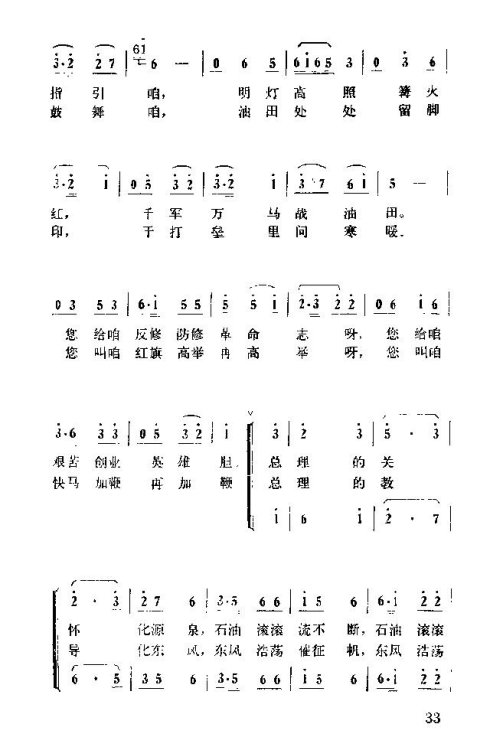 3·2 27 6 — | 0 6 5 | 6165 3 | 0 3 6 |
指引咱， 明灯高照篝火
鼓舞咱， 油田处处留脚
3·2 1 | 05 32 | 3·2 1 | 3 7 61 | 5 — |
红， 千军万马战油田。
印， 干打垒里问寒暖。
03 53 | 6·1 55 | 5 51 | 2·3 22 | 06 16 |
您给咱反修防修革命志呀，您给咱
您叫咱红旗高举再高举呀，您叫咱
3·6 33 | 05 32 | 1 | 3 2 | 5 · 3 |
艰苦创业英雄胆。总理的关
快马加鞭再加鞭 总理的教
1 6 1 | 2 · 7 |
2 · 3 | 27 6 | 3·5 66 | 15 6 | 6·1 22 |
怀 化源泉，石油滚滚流不断，石油滚滚
导 化东风，东风浩荡催征帆，东风浩荡
6 · 5 | 35 6 | 3·5 66 | 15 6 | 6·1 22 |
33